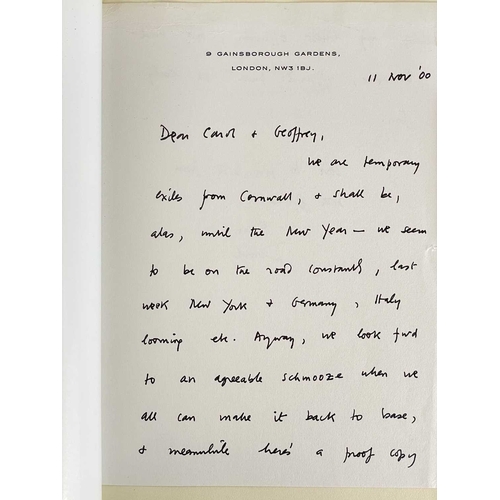 9 GAINSBOROUGH GARDENS,
LONDON, NW3 1BJ.
11 Nov '00
Dear Carol & Geoffrey,
We are temporary
exiles from Cornwall, & shall be,
alas, until the New Year — we seem
to be on the road constantly, last
week New York & Germany, Italy
looming etc. Anyway, we look fwd
to an agreeable schmooze when we
all can make it back to base,
& meanwhile here's a proof copy